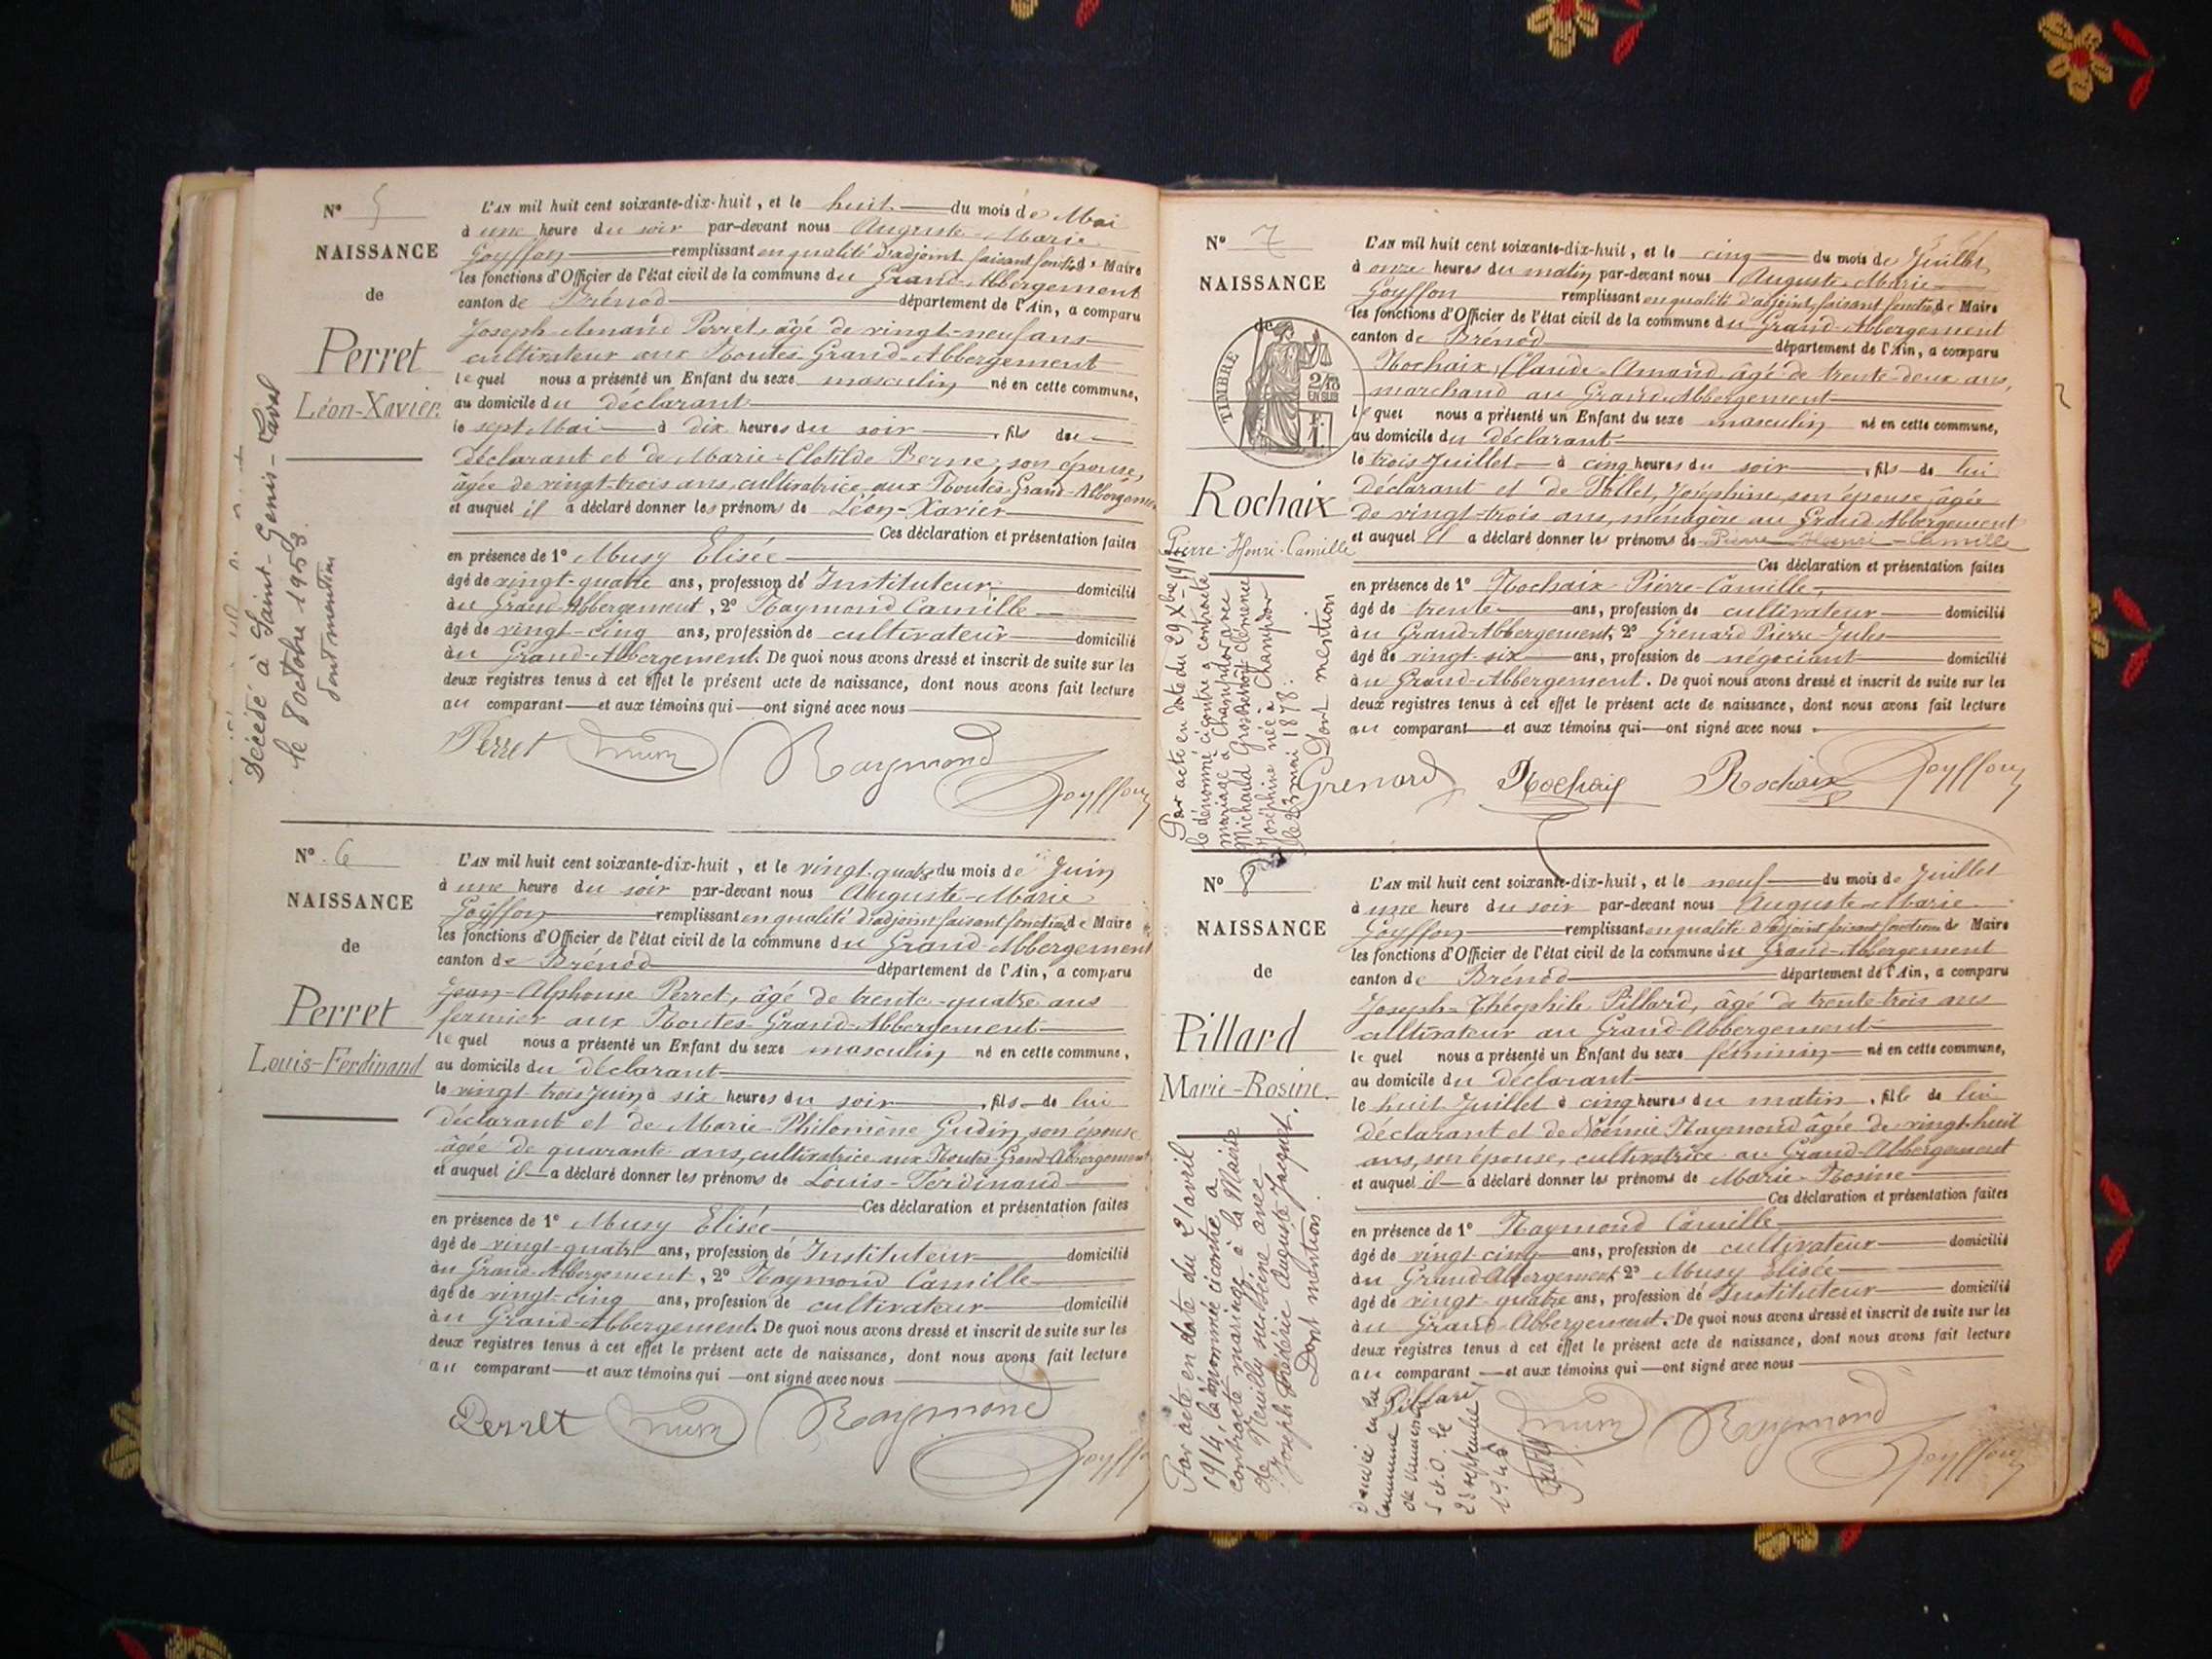 N° 5
NAISSANCE
de
Perret
Léon-Xavier
Décédé à Saint-Genis-Laval
le 8 octobre 1953.
dont mention
L'AN mil huit cent soixante-dix-huit, et le huit du mois de Mai
à une heure du soir par-devant nous Auguste-Marie
Goyffon remplissant en qualité d'adjoint faisant fonction de Maire
les fonctions d'Officier de l'état civil de la commune du Grand-Abbergement
canton de Brénod département de l'Ain, a comparu
Joseph-Amand Perret, âgé de vingt-neuf ans
cultivateur aux Routes Grand-Abbergement
lequel nous a présenté un Enfant du sexe masculin né en cette commune,
au domicile du déclarant
le sept Mai à dix heures du soir, fils du
déclarant et de Marie-Clotilde Berne, son épouse,
âgée de vingt-trois ans, cultivatrice aux Routes Grand-Abbergement
et auquel il a déclaré donner les prénoms de Léon-Xavier
Ces déclaration et présentation faites
en présence de 1° Musy Elisée
âgé de vingt-quatre ans, profession de Instituteur domicilié
au Grand-Abbergement, 2° Raymond Camille
âgé de vingt-cinq ans, profession de cultivateur domicilié
au Grand-Abbergement. De quoi nous avons dressé et inscrit de suite sur les
deux registres tenus à cet effet le présent acte de naissance, dont nous avons fait lecture
au comparant et aux témoins qui ont signé avec nous
Perret Musy Raymond
Goyffon
N° 6
NAISSANCE
de
Perret
Louis-Ferdinand
L'AN mil huit cent soixante-dix-huit, et le vingt-quatre du mois de Juin
à une heure du soir par-devant nous Auguste-Marie
Goyffon remplissant en qualité d'adjoint faisant fonction de Maire
les fonctions d'Officier de l'état civil de la commune du Grand-Abbergement
canton de Brénod département de l'Ain, a comparu
Jean-Alphonse Perret, âgé de trente-quatre ans
fermier aux Routes-Grand-Abbergement
lequel nous a présenté un Enfant du sexe masculin né en cette commune,
au domicile du déclarant
le vingt-trois Juin à six heures du soir, fils de lui
déclarant et de Marie-Philomène Gudin, son épouse
âgée de quarante ans, cultivatrice aux Routes-Grand-Abbergement
et auquel il a déclaré donner les prénoms de Louis-Ferdinand
Ces déclaration et présentation faites
en présence de 1° Musy Elisée
âgé de vingt-quatre ans, profession de Instituteur domicilié
au Grand-Abbergement, 2° Raymond Camille
âgé de vingt-cinq ans, profession de cultivateur domicilié
au Grand-Abbergement. De quoi nous avons dressé et inscrit de suite sur les
deux registres tenus à cet effet le présent acte de naissance, dont nous avons fait lecture
au comparant et aux témoins qui ont signé avec nous
Perret Musy Raymond
Goyffon
N° 7
NAISSANCE
de
TIMBRE
2/10
EN SUS
F.
1.
Rochaix
Pierre-Henri-Camille
Par acte en date du 29 Xbre
le dénommé cicontre a contracté
mariage à Champdor avec
Michaud Clémence
Joséphine née à Champdor
le 23 mai 1878.
Dont mention
L'AN mil huit cent soixante-dix-huit, et le cinq du mois de Juillet,
à onze heures du matin par-devant nous Auguste-Marie
Goyffon remplissant en qualité d'adjoint faisant fonction de Maire
les fonctions d'Officier de l'état civil de la commune du Grand-Abbergement
canton de Brénod département de l'Ain, a comparu
Rochaix, Claude-Amand âgé de trente-deux ans,
marchand au Grand-Abbergement
lequel nous a présenté un Enfant du sexe masculin né en cette commune,
au domicile du déclarant
le trois Juillet à cinq heures du soir, fils de lui
Déclarant et de Tollet, Joséphine, son épouse, âgée
de vingt-trois ans, ménagère au Grand-Abbergement
et auquel il a déclaré donner les prénoms de Pierre-Henri-Camille
Ces déclaration et présentation faites
en présence de 1° Rochaix Pierre-Camille,
âgé de trente ans, profession de cultivateur domicilié
au Grand-Abbergement, 2° Grenard Pierre-Jules
âgé de vingt-six ans, profession de négociant domicilié
au Grand-Abbergement. De quoi nous avons dressé et inscrit de suite sur les
deux registres tenus à cet effet le présent acte de naissance, dont nous avons fait lecture
au comparant et aux témoins qui ont signé avec nous
Grenard Rochaix Rochaix Goyffon
N° 8
NAISSANCE
de
Pillard
Marie-Rosine.
Par acte en date du 21 avril
1914, la dénommée cicontre a
contracté mariage à la Mairie
de Neuilly sur Seine avec
Joseph Frédéric Auguste Jacquet.
Dont mention.
L'AN mil huit cent soixante-dix-huit, et le neuf du mois de Juillet
à une heure du soir par-devant nous Auguste-Marie
Goyffon remplissant en qualité d'adjoint faisant fonction de Maire
les fonctions d'Officier de l'état civil de la commune du Grand-Abbergement
canton de Brénod département de l'Ain, a comparu
Joseph-Théophile Pillard, âgé de trente-trois ans
cultivateur au Grand-Abbergement
lequel nous a présenté un Enfant du sexe féminin né en cette commune,
au domicile du déclarant
le huit Juillet à cinq heures du matin, fille de lui
déclarant et de Noémie Raymond âgée de vingt-huit
ans, son épouse, cultivatrice au Grand-Abbergement
et auquel il a déclaré donner les prénoms de Marie-Rosine
Ces déclaration et présentation faites
en présence de 1° Raymond Camille
âgé de vingt-cinq ans, profession de cultivateur domicilié
au Grand-Abbergement, 2° Musy Elisée
âgé de vingt-quatre ans, profession de Instituteur domicilié
au Grand-Abbergement. De quoi nous avons dressé et inscrit de suite sur les
deux registres tenus à cet effet le présent acte de naissance, dont nous avons fait lecture
au comparant et aux témoins qui ont signé avec nous
Pillard Musy Raymond
Goyffon
Commune
S et O. le
23 septembre